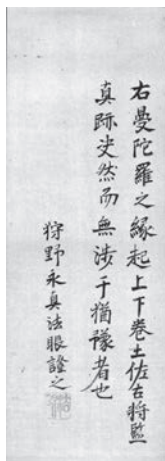 右曼陀羅之縁起上下巻土佐古将監
真跡決然而無渉于猶豫者也
狩野永真法眼證之